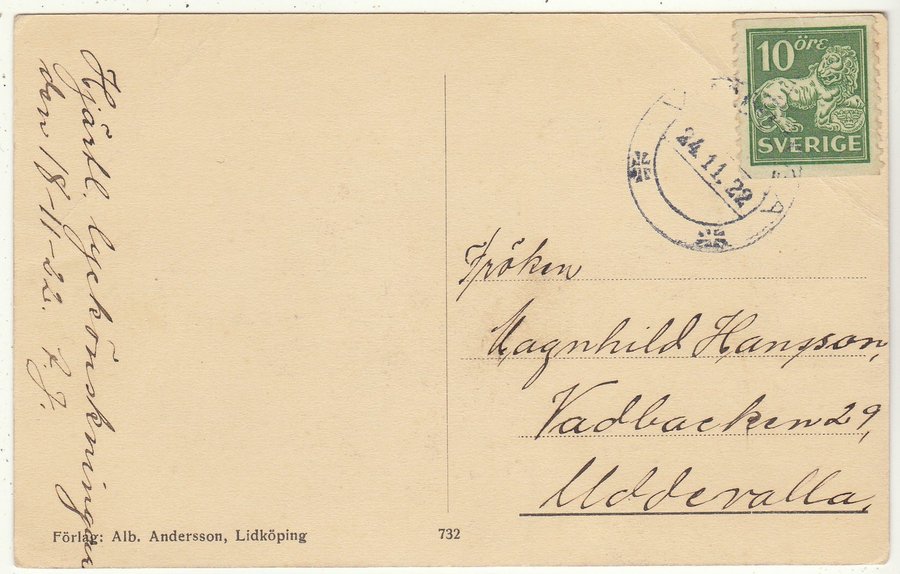 Hjärtl. lyckönskningar
den 18-11-22. A.J.
10 öre
SVERIGE
24.11.22
Fröken
Magnhild Hansson,
Vadbacken 29,
Uddevalla.
Förlag: Alb. Andersson, Lidköping
732